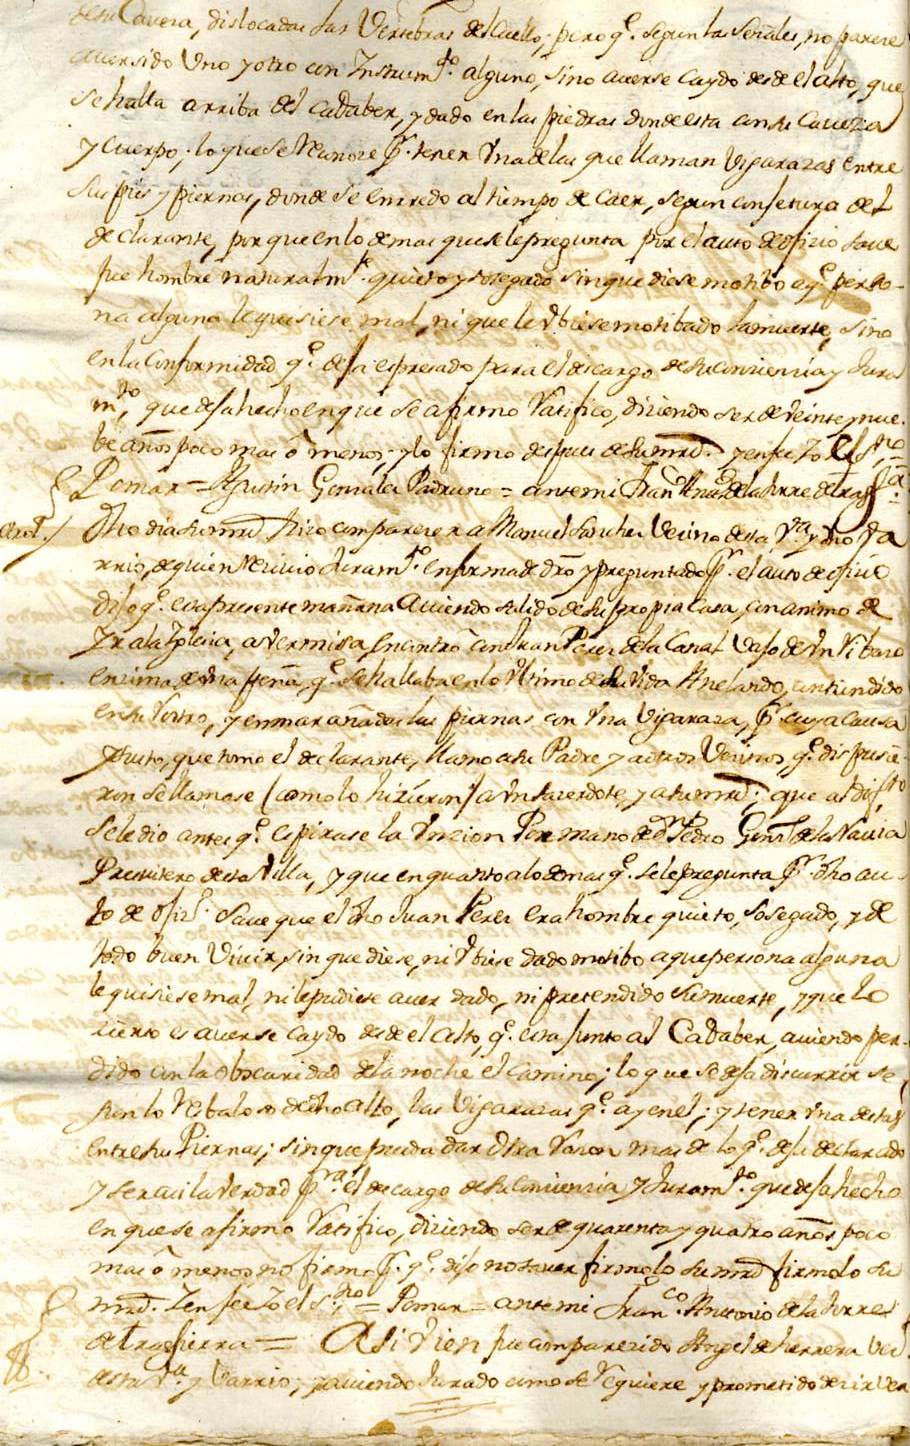 de su Cavera, dislocadas las Vertebras del Cuello, pero q.e segun las señales, no parece
aversido Uno y otro con Instrum.to alguno, sino averse Caydo desde el alto, que
se halla arriba del Cadaber, y dado en las piedras donde esta con su Caveza
y Cuerpo, lo que se reconoze p.r tener Una de las que llaman Vigarazas entre
sus pies y piernas, donde se enrredo al tiempo de Caer, segun conjetura del
declarante, porque en lo demas que se le pregunta por el auto de ofizio save
fue hombre naturalm.te quieto y sosegado sin que diese motibo a q.e perso-
na alguna le quisiese mal, ni que le Ubiese motibado la muerte, sino
en la Conformidad q.e deja espresado para el descargo de su Conzienzia y Jura
m.to que deja hecho en que se afirmo Ratifico, diziendo ser de veinte y nue
be años poco mas ô menos, y lo firmo despues de su mrd. y en fee Yo el s.no =
Pomar = Agustin Gonzalez Padruno = ante mi Fran.co Ant.o de la Torre de Trasierra
Dho dia su mrd hizo comparecer a Manuel Sanchez Vezino de esta V.a y dho Ba
rrio, de quien Recivio Juram.to en forma de dro y preguntado p.r el auto de ofizio
dijo q.e esta presente mañana aviendo salido de su propia Casa, con animo de
Yr a la Yglesia, a ver misa, encontró con Juan Perez de la Canal debajo de Un Ribazo
enzima de Una peña, q.e se hallaba en lo Ultimo de su Vida Anelando, contundido
en su Rostro, y enmarañadas las piernas con Una Vigaraza, p.r cuya causa
y susto, que tomo el declarante, llamo a su Padre y a otros Vezinos, q.e dispusie-
ron se llamase (como lo hizieron) a Un Sacerdote, y a su mrd; que al dif.to
se le dio antes q.e espirase la Unzion Por mano de D.n Pedro Gonz. de la Navia
Presvitero de esta Villa, y que en quanto a lo demas q.e se le pregunta p.r dho au-
to de ofiz.o save que el dho Juan Perez era hombre quieto, sosegado, y de
todo buen Vivir, sin que diese, ni Ubiese dado motibo a que persona alguna
le quisiese mal, ni le pudiese aver dado, ni pretendido su muerte, y que lo
zierto es averse caydo desde el Alto, q.e esta Junto al Cadaber, aviendo per-
dido con la obscuridad de la noche el Camino; lo que se deja discurrir se-
gun lo Resbaloso de dho alto, las Vigarazas q.e ay en el; y tener Una de ellas
entre sus Piernas; sin que pueda dar Otra Razon mas de lo q.e deja declarado
y ser asi la Verdad p.ra el descargo de su Conzienzia y Juram.to que deja hecho
en que se afirmo Ratifico, diziendo ser de quarenta y quatro años poco
mas ô menos no firmo p.r q.e dijo no saver firmolo su mrd firmolo su
mrd. Y en fee Yo el s.no = Pomar = ante mi Fran.co Antonio de la Torre
de Trasierra = Asi Vien fue comparezido Angel de Herrera Vez.o
de esta V.a y Varrio, y aviendo Jurado como se Requiere y prometido dezir Ver